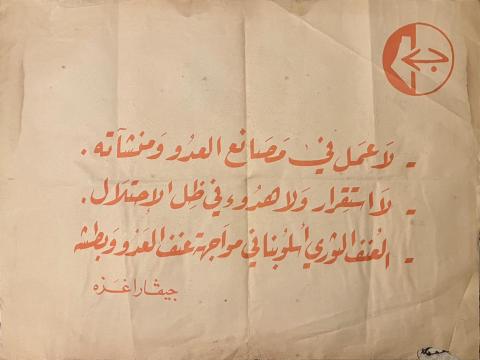 - لَا عَمَل في مَصَانع العدُو ومَنشآته .
- لَا استِقرار وَلا هدُوء في ظِل الاِحتلال .
- العُنف الثوري أسلوبنا في مواجهة عنف العَدُو وبَطشه
جيڤارا غَزه